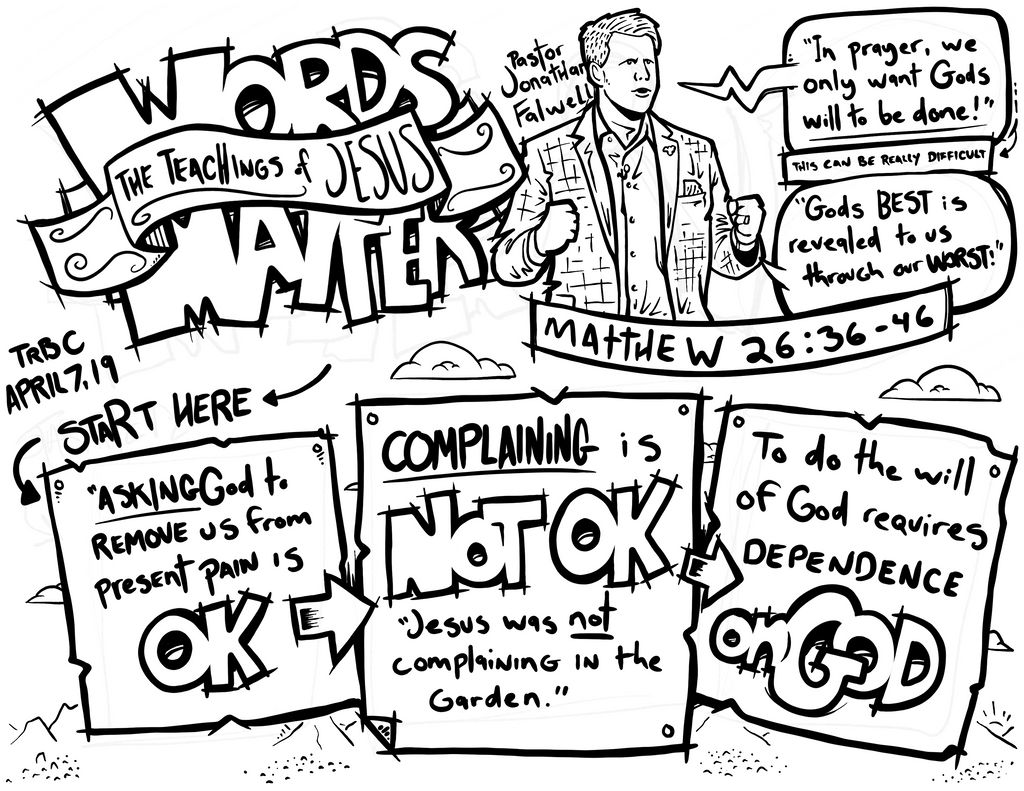 WORDS
THE TEACHINGS of JESUS
MATTER
Pastor
Jonathan
Falwell
"In prayer, we
only want Gods
will to be done!"
THIS CAN BE REALLY DIFFICULT
"Gods BEST is
revealed to us
through our WORST!"
MATTHEW 26:36-46
TRBC
APRIL 7, 19
START HERE
"ASKING God to
REMOVE us from
present PAIN is
OK
COMPLAINING is
NOT OK
"Jesus was not
complaining IN the
Garden."
To do the will
of God requires
DEPENDENCE
ON GOD